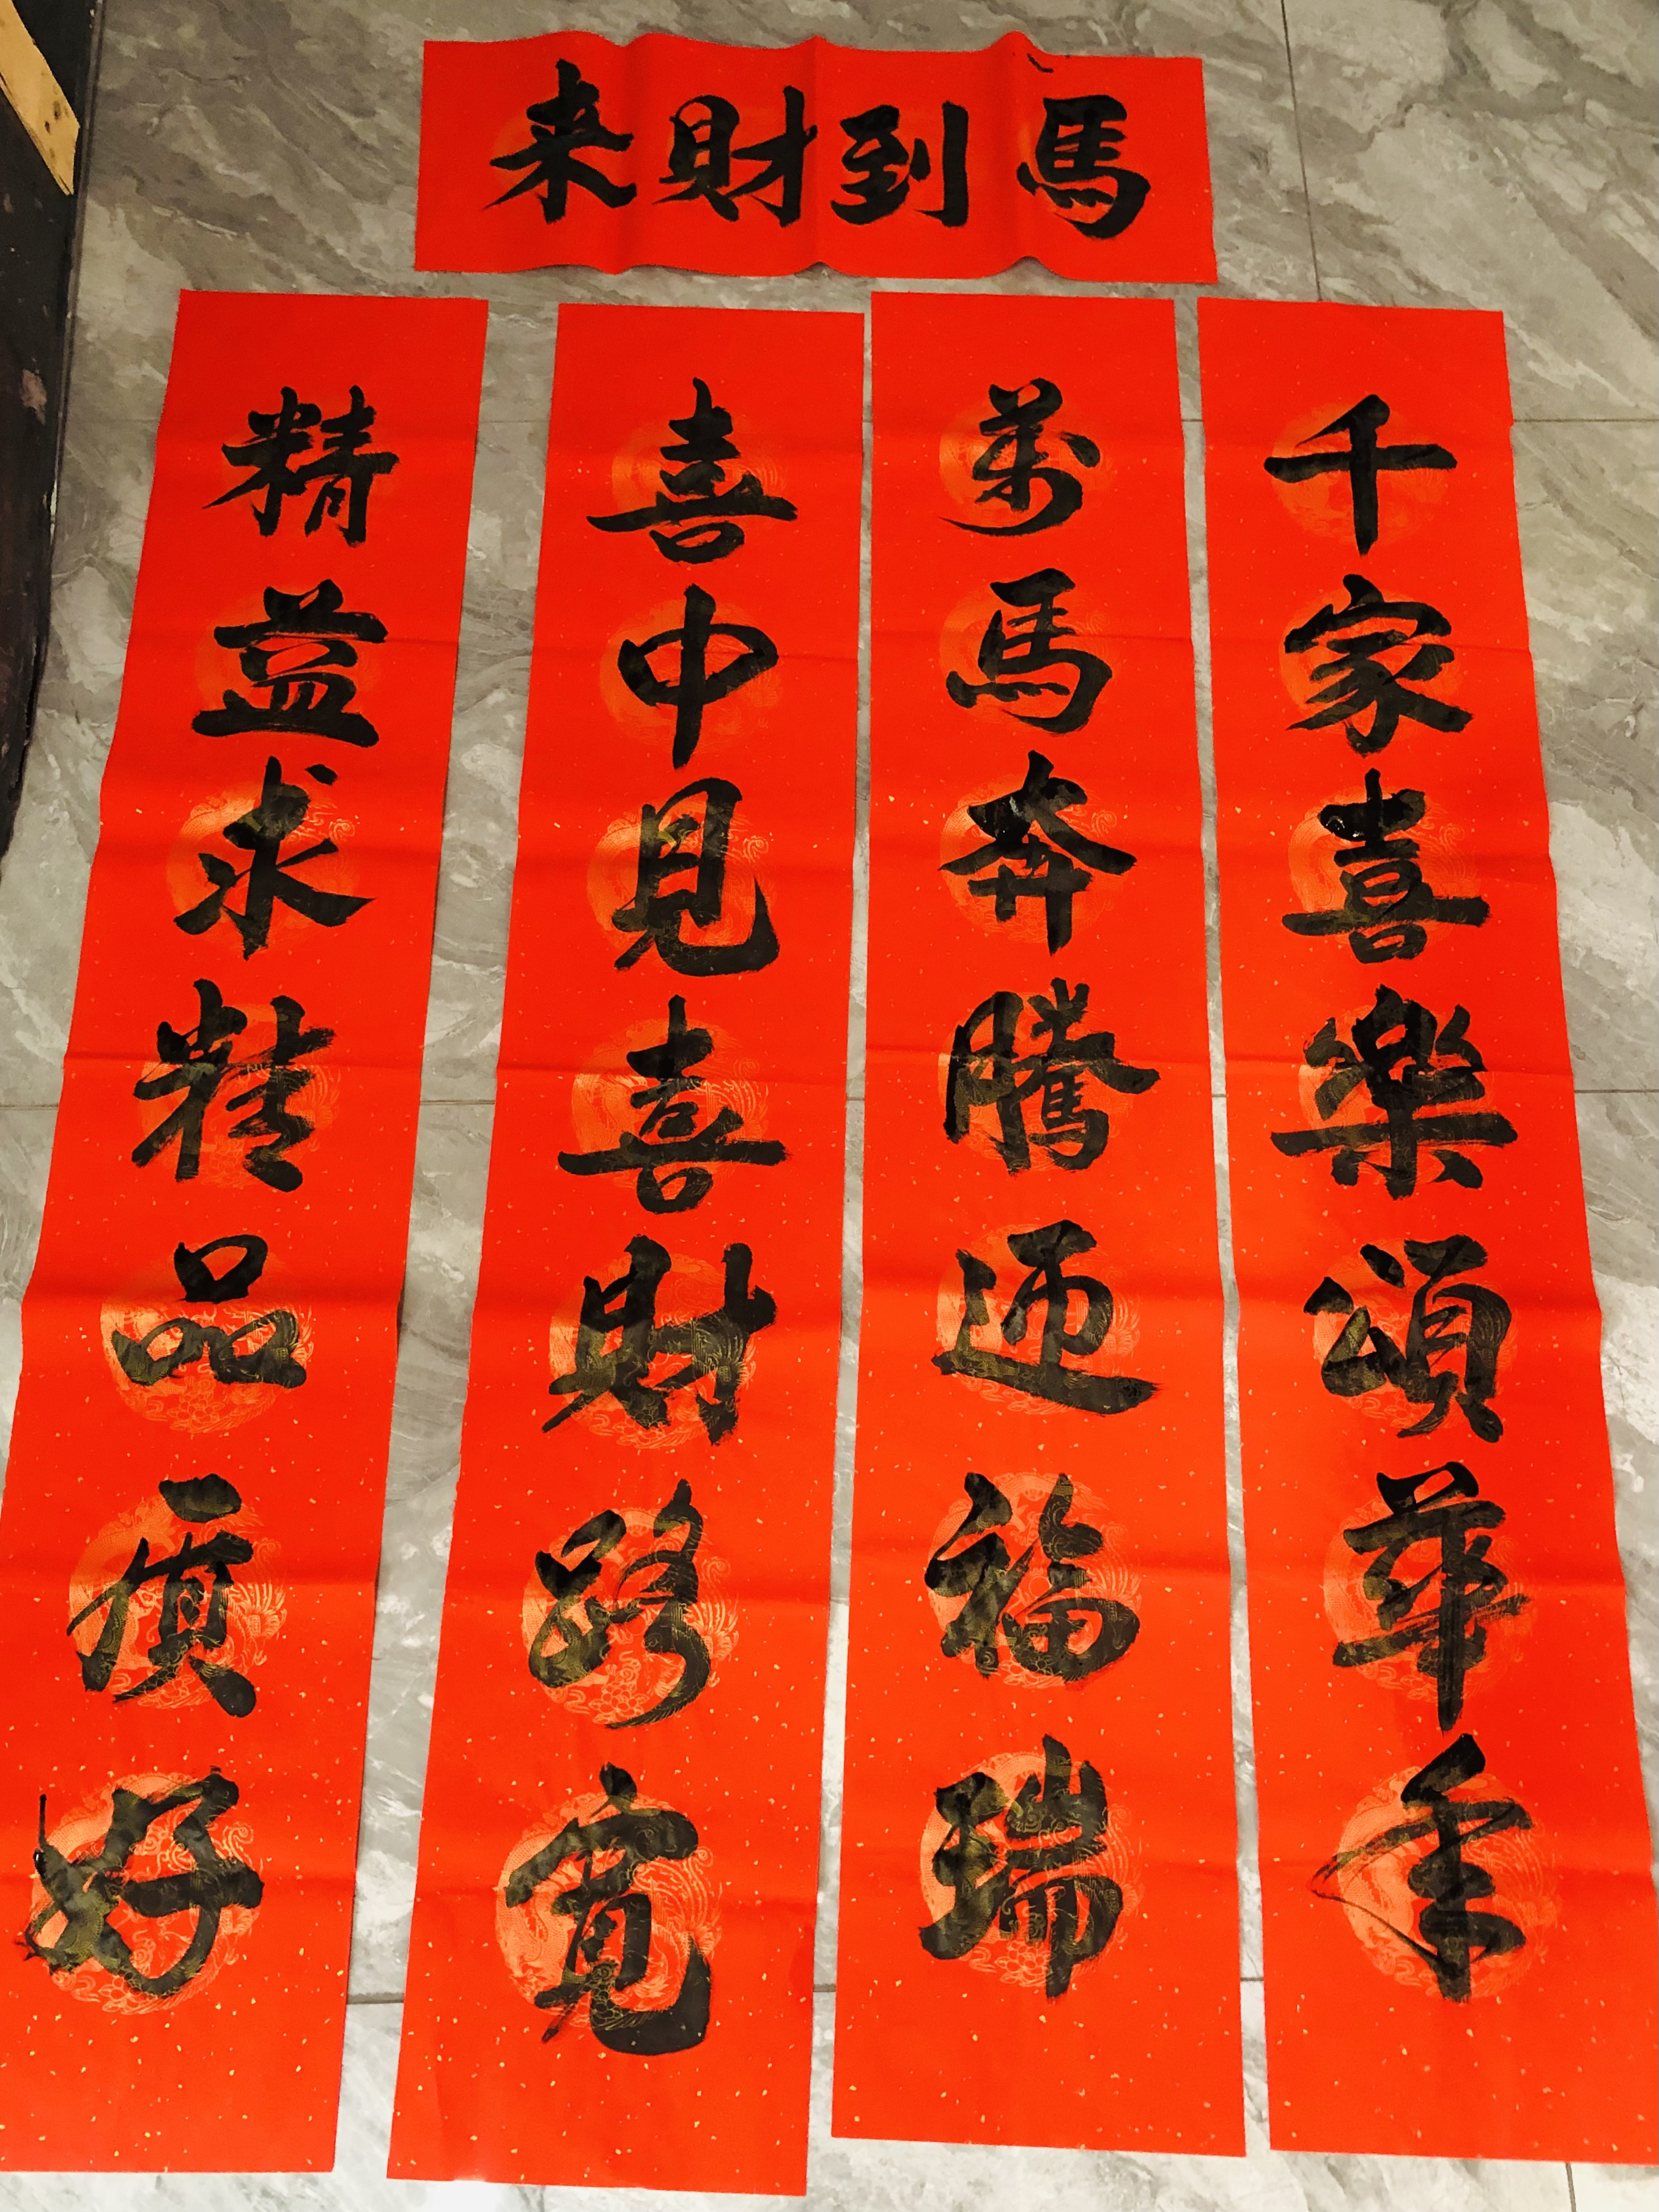 馬到財来
千家喜樂頌華年
萬馬奔騰迎福瑞
喜中見喜財路寬
精益求精品質好